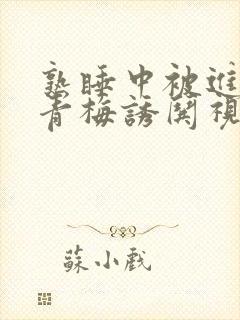 熟睡中被進
青梅誘関視
蘇小戲